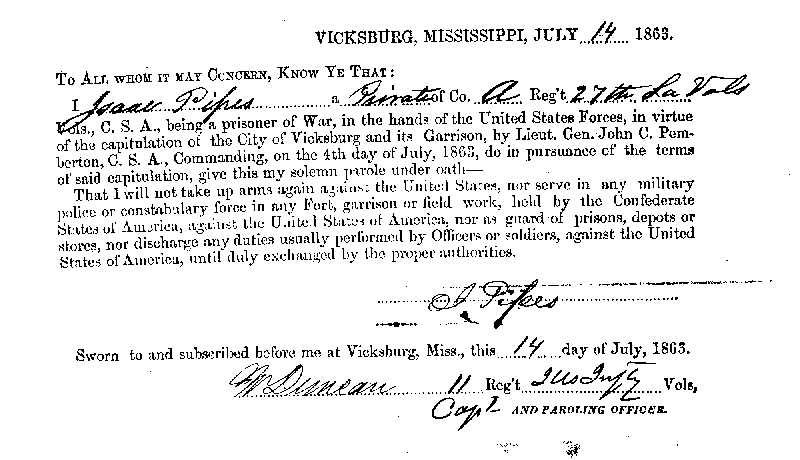 VICKSBURG, MISSISSIPPI, JULY 14 1863.
TO ALL WHOM IT MAY CONCERN, KNOW YE THAT:
I Isaac Pipes a Private of Co. A Reg't 27th La Vols
Vols., C. S. A., being a prisoner of War, in the hands of the United States Forces, in virtue
of the capitulation of the City of Vicksburg and its Garrison, by Lieut. Gen. John C. Pem-
berton, C. S. A., Commanding, on the 4th day of July, 1863, do in pursuance of the terms
of said capitulation, give this my solemn parole under oath—
That I will not take up arms again against the United States, nor serve in any military
police or constabulary force in any Fort, garrison or field work, held by the Confederate
States of America, against the United States of America, nor as guard of prisons, depots or
stores, nor discharge any duties usually performed by Officers or soldiers, against the United
States of America, until duly exchanged by the proper authorities.
I Pipes
Sworn to and subscribed before me at Vicksburg, Miss., this 14 day of July, 1863.
W Duncan 11 Reg't Ills Infty Vols,
Capt AND PAROLING OFFICER.